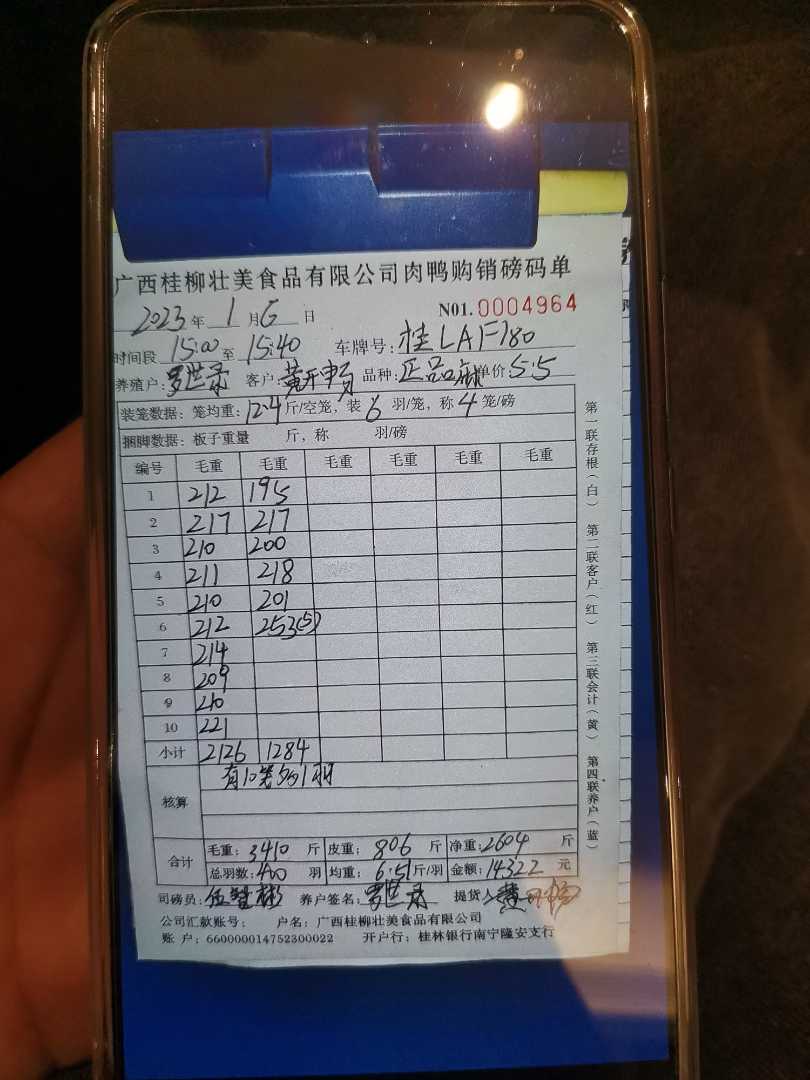 广西桂柳壮美食品有限公司肉鸭购销磅码单
2023年1月6日 N01.0004964
时间段15:00至15:40 车牌号:桂LAF780
养殖户:罗世录 客户: 品种:正品麻 单价:5.5
装笼数据:笼均重:12.4斤/空笼,装6羽/笼,称4笼/磅
捆脚数据:板子重量 斤,称 羽/磅
编号 毛重 毛重 毛重 毛重 毛重 毛重
1 212 195
2 217 217
3 210 200
4 211 218
5 210 201
6 212 253(5)
7 214
8 209
9 210
10 221
小计 2126 1284
核算 有10笼多1羽
合计 毛重:3410斤 皮重:806斤 净重:2604斤
总羽数:400羽 均重:6.51斤/羽 金额:14322元
司磅员: 养户签名:罗世录 提货人:黄
公司汇款账号: 户名:广西桂柳壮美食品有限公司
账户:660000014752300022 开户行:桂林银行南宁隆安支行
第一联存根(白) 第二联客户(红) 第三联会计(黄) 第四联养户(蓝)